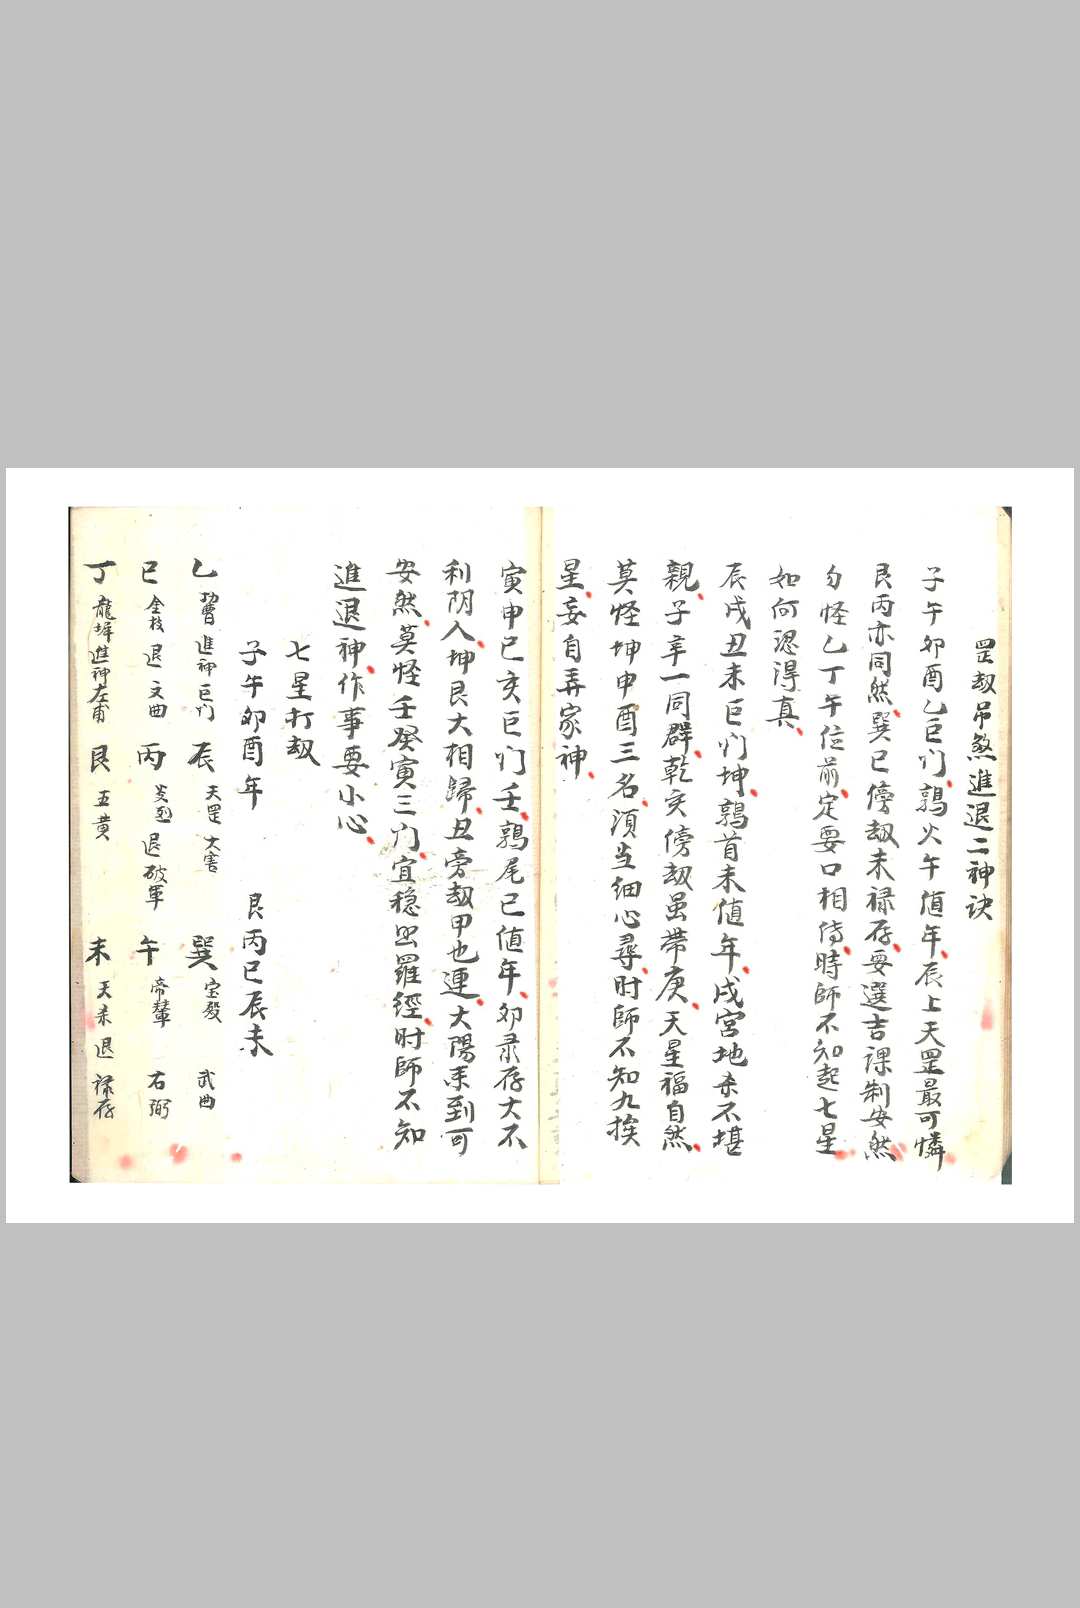 罡刼吊煞進退二神诀
子午卯酉乙巨门鶉火午值年辰上天罡最可憐
艮丙亦同然巽巳傍刼未禄存要選吉課制安然
勾怪乙丁午位前定要口相侍時師不知起七星
如何認得真
辰戌丑未巨门坤鶉首未值年戌宮地杀不堪
親子辛一同群乾亥傍刼虽帶庚天星福自然
莫怪坤申酉三名須当细心尋时師不知九挨
星妄自弄家神
寅申巳亥巨门壬鶉尾巳值年卯录存大不
利阴人坤艮大相歸丑旁刼甲也連太陽系到可
安然莫怪壬癸寅三门宜稳出羅經时師不知
進退神作事要小心
七星打刼
子午卯酉年 艮丙巳辰未
乙 進神巨门 辰 天罡 大害 巽 宝殿 武曲
巳 金枝 退 文曲 丙 炎烈 退破軍 午 帝輦 右弼
丁 龍墀進神左甫 艮 五黄 未 天杀 退 禄存